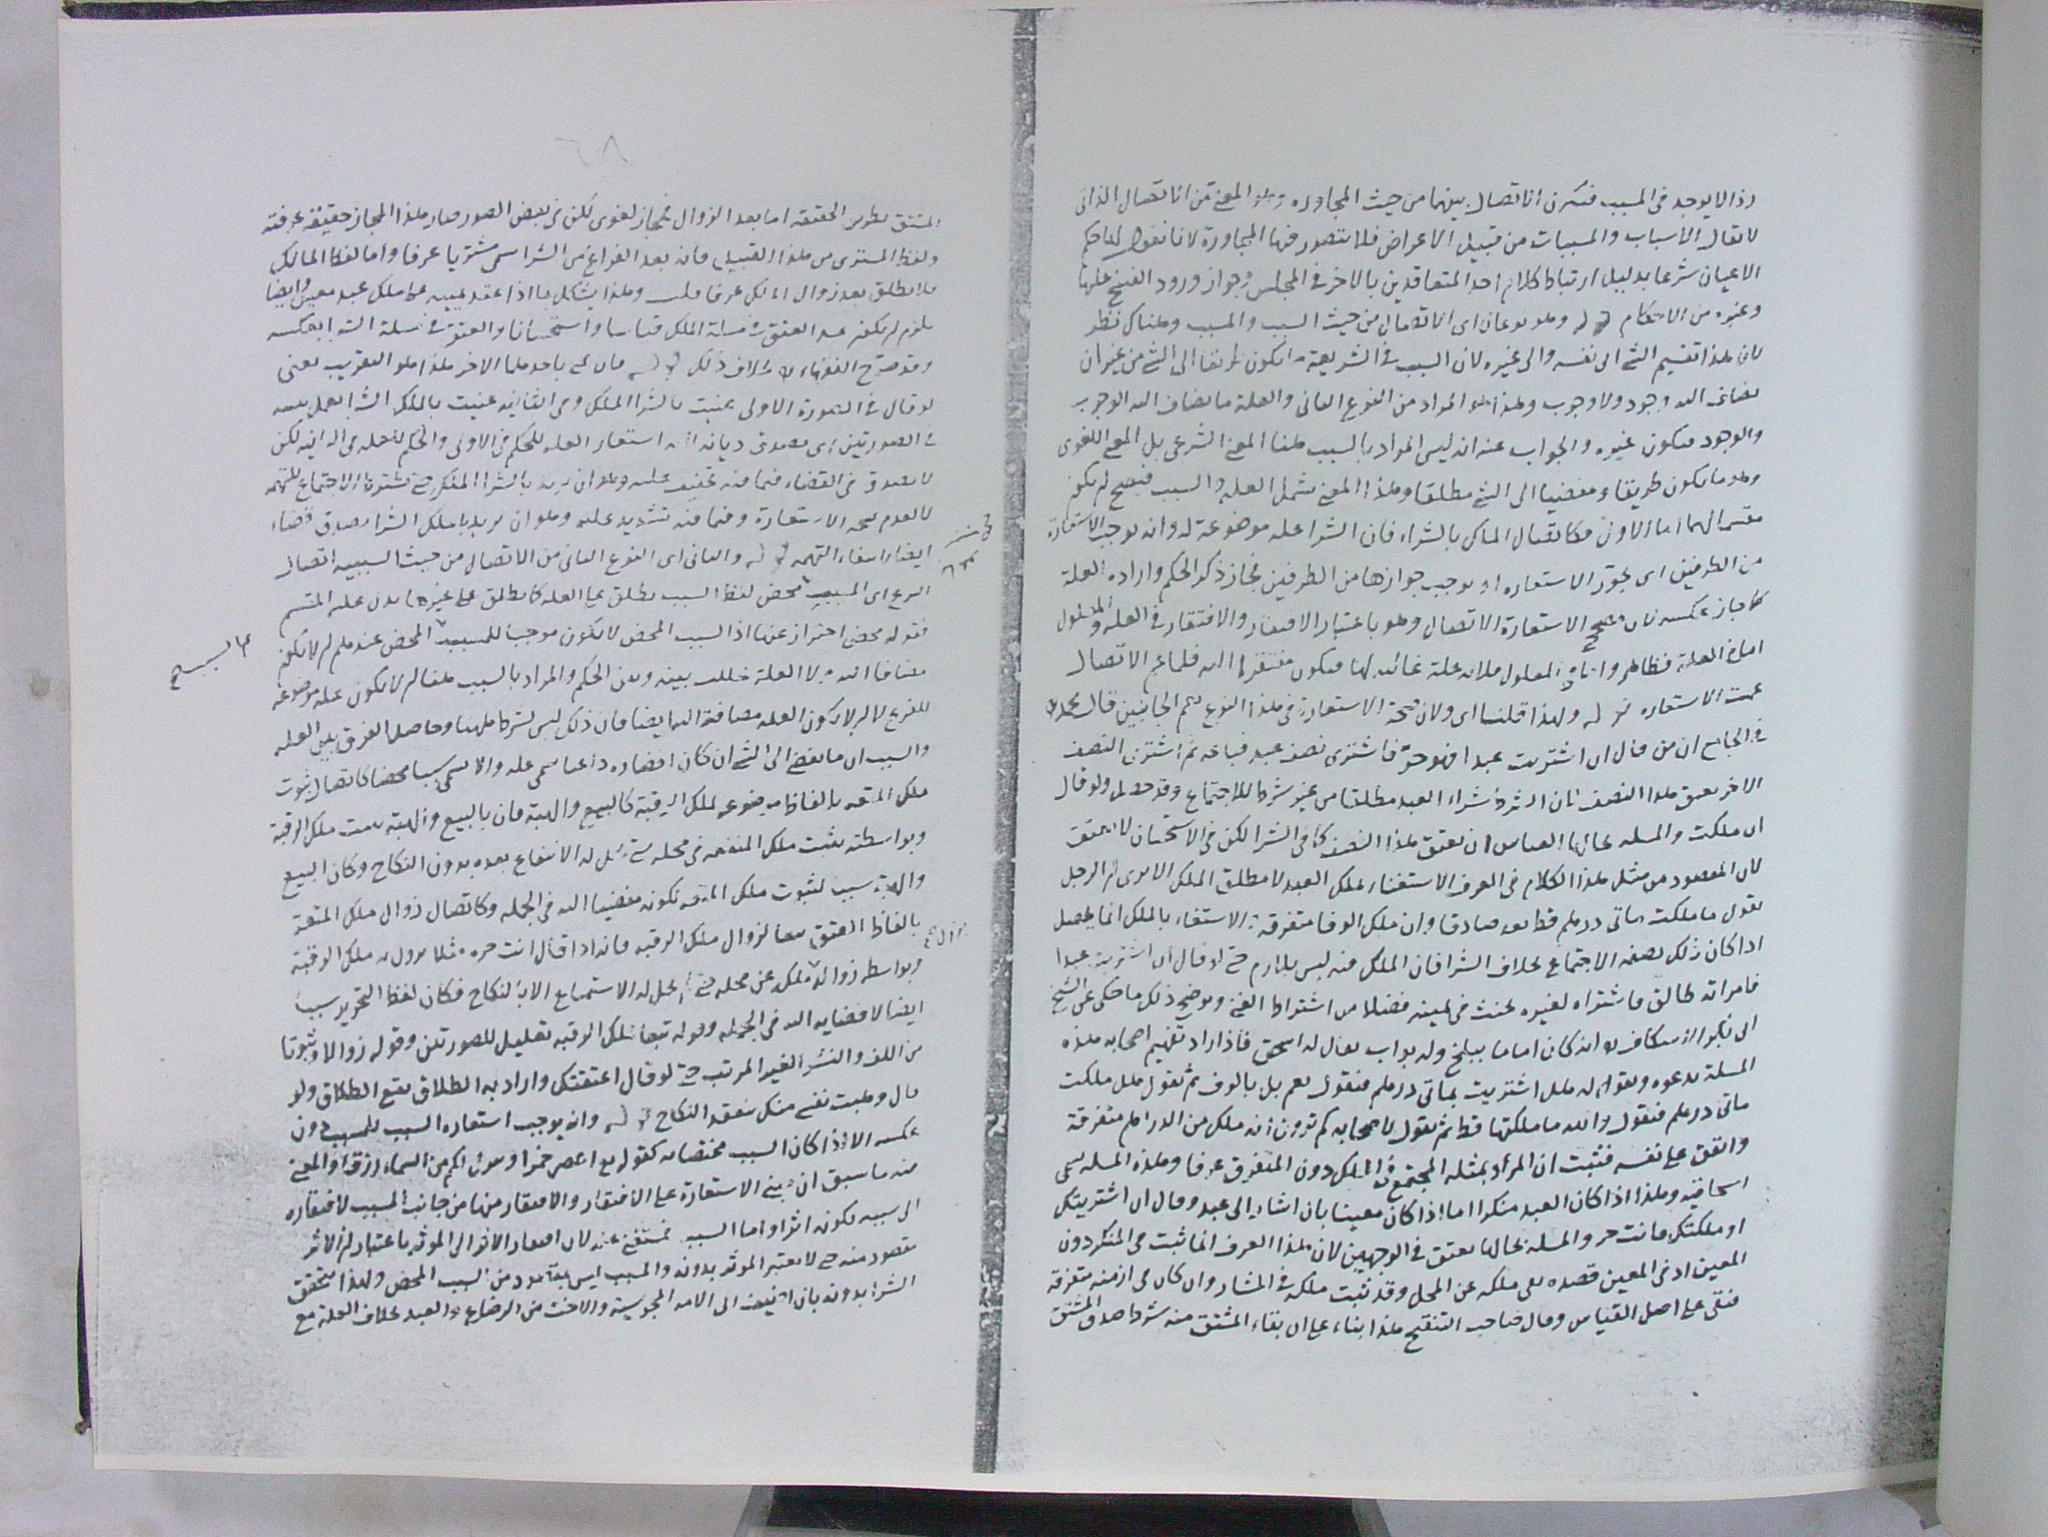 وذا لا يوجد في المسبب فتكون الاتصال بينهما من حيث المجاورة وهذا المعنى من الاتصال الذاتي
لا يقال الأسباب والمسببات من قبيل الاعراض فلا يتصور فيها المجاورة لانا نقول لها حكم
الاعيان شرعا بدليل ارتباط كلام احد المتعاقدين بالاخر في المجلس وجواز ورود الفسخ عليها
وغيره من الاحكام قوله وهو نوعان اى الاتصال من حيث السبب والمسبب وهناك نظر
لان هذا تقسيم الشئ الى نفسه والى غيره لان السبب في الشريعة ما يكون طريقا الى الشئ من غير ان
يضاف اليه وجود ولا وجوب وهذا هو المراد من النوع الثانى والعلة ما يضاف اليه الوجوب
والوجود فيكون غيره والجواب عنه انه ليس المراد بالسبب هنا المعنى الشرعى بل المعنى اللغوى
وهو ما يكون طريقا ومفضيا الى الشئ مطلقا وهذا المعنى يشمل العلة والسبب فيصح ان يكون
مقسما لهما اما الاول فكاتصال الملك بالشراء فان الشرا علة موضوعة له وانه يوجب الاستعارة
من الطرفين اى يجوز الاستعاره او يوجب جوازها من الطرفين فجاز ذكر الحكم واراده العلة
كما جاز عكسه لان مصحح الاستعارة الاتصال وهو باعتبار الافتقار والافتقار في العلة والمعلول
اما في العلة فظاهر واما في المعلول فلانه علة غائيه لها فيكون مفتقرا اليه فلما عم الاتصال
عمت الاستعاره قوله ولهذا قلنا اى ولان صحة الاستعارة في هذا النوع يعم الجانبين قال محمد
في الجامع ان من قال ان اشتريت عبدا فهو حر فاشترى نصف عبد فباعه ثم اشترى النصف
الاخر يعتق هذا النصف لان الشرط شراء العبد مطلقا من غير شرط الاجتماع وقد حصل ولو قال
ان ملكت والمسله بحالها القياس ان يعتق هذا النصف كما في الشرا لكن في الاستحسان لا يعتق
لان المقصود من مثل هذا الكلام في العرف الاستغناء بملك العبد لا مطلق الملك الا يرى ان الرجل
يقول ما ملكت مأتى درهم قط يعد صادقا وان ملك الوفا متفرقة الاستغناء بالملك انما يحصل
اذا كان ذلك بصفة الاجتماع بخلاف الشرا فان الملك فيه ليس بلازم حتى لو قال ان اشتريت عبدا
فامراته طالق فاشتراه لغيره يحنث في يمينه فضلا من اشتراط الغنى ويوضح ذلك ما حكى عن الشيخ
ابى بكر الاسكاف انه كان اماما ببلخ وله بواب يقال له اسحق فاذا اراد تفهيم اصحابه هذه
المسلة يدعوه ويقول له هل اشتريت بمأتى درهم فيقول نعم بل بالوف ثم يقول هل ملكت
مأتى درهم فيقول والله ما ملكتها قط ثم يقول لاصحابه كم ترون انه ملك من الدراهم متفرقة
وانفق على نفسه فثبت ان المراد بمثله المجتمع في الملك دون المتفرق عرفا وهذه المسله تسمى
اسحاقية وهذا اذا كان العبد منكرا اما اذا كان معينا بان اشار الى عبد وقال ان اشتريتك
او ملكتك فانت حر والمسله بحالها يعتق في الوجهين لان هذا العرف انما ثبت في المنكر دون
المعين اذ في المعين قصده نفى ملكه عن المحل وقد ثبت ملكه في المشار وان كان في ازمنة متفرقة
فبقى على اصل القياس وقال صاحب التنقيح هذا بناء على ان بقاء المشتق منه شرط صدق المشتق
المشتق بطريق الحقيقه اما بعد الزوال فمجاز لغوى لكن في بعض الصور صار هذا المجاز حقيقة عرفية
ولفظ المشترى من هذا القبيل فانه بعد الفراغ من الشرا سمى مشتريا عرفا واما لفظ المالك
فلا يطلق بعد زوال الملك عرفا
وقد صرح الفقهاء بخلاف ذلك قوله فان عنى باحدهما الاخر هذا هو التقريب يعنى
لو قال في الصورة الاولى عنيت بالشرا الملك وفي الثانيه عنيت بالملك الشرا يعمل بنيته
في الصورتين اى يصدق ديانة لانه استعار العلة للحكم في الاولى والحكم للعلة في الثانية لكن
لا يصدق في القضاء فيما فيه تخفيف عليه وهو ان يريد بالشرا الملك حتى يشترط الاجتماع للتهمة
لا لعدم صحة الاستعارة وفيما فيه تشديد عليه وهو ان يريد بالملك الشرا يصدق قضاء
ايضا لانتفاء التهمة قوله والثانى اى النوع الثانى من الاتصال من حيث السببية اتصال
الفرع اى المسبب بسبب محض لفظ السبب يطلق على العلة كما يطلق على غيرها يدل عليه المقسم
فقوله محض احتراز عنها اذ السبب المحض لا يكون موجبا للمسبب المحض عندهم ان لا يكون
مضافا اليه ولا العلة تخلل بينه وبين الحكم والمراد بالسبب هنا ان لا يكون علة موضوعة
للفرع لا ان لا يكون العلة مضافة اليه ايضا فان ذلك ليس بشرط هنا وحاصل الفرق بين العلة
والسبب ان ما يفضى الى الشئ ان كان افضاؤه داعيا سمى علة والا سمى سببا محضا كاتصال ثبوت
ملك المتعه بالفاظ موضوعة لملك الرقبة كالبيع والهبة فان بالبيع والهبة يثبت ملك الرقبة
وبواسطته يثبت ملك المتعة في محله حتى يحل له الانتفاع بعده بدون النكاح وكان البيع
والهبة سببا لثبوت ملك المتعه لكونه مفضيا اليه في الجملة وكاتصال زوال ملك المتعة
بالفاظ العتق تبعا لزوال ملك الرقبه فانه اذا قال انت حره مثلا يزول به ملك الرقبة
وبواسطة زواله ملك عن محله حتى لا يحل له الاستمتاع الا بالنكاح فكان لفظ التحرير سببا
ايضا لافضايه اليه في الجملة وقوله تبعا لملك الرقبه تعليل للصورتين وقوله زوالا وثبوتا
من اللف والنشر الغير المرتب حتى لو قال اعتقتك واراد به الطلاق يقع الطلاق ولو
قال وهبت نفسى منك ينعقد النكاح قوله وانه يوجب استعارة السبب للمسبب دون
عكسه الا اذا كان السبب مختصا به كقوله تع اعصر خمرا وينزل لكم من السماء رزقا والمعنى
فيه ما سبق ان مبنى الاستعارة على الافتقار والافتقار منها من جانب المسبب لافتقاره
الى سببه لكونه اثرا واما السبب فمستغن عنه لان افتقار الاثر الى المؤثر باعتبار ان الاثر
مقصود منه حتى لا يعتبر المؤثر بدونه والمسبب ليس بمقصود من السبب المحض ولهذا يتحقق
الشرا بدونه بان اضيف الى الامة المجوسية والاخت من الرضاع والعبد بخلاف العلة مع